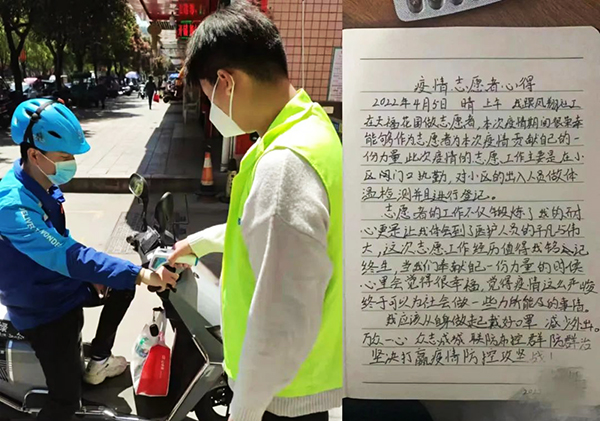 疫情志愿者心得
2022年4月5日 晴 上午 我跟风翔社工
在大福花园做志愿者,本次疫情期间很荣幸
能够作为志愿者为本次疫情贡献自己的一
份力量,此次疫情的志愿工作主要是在小
区闸门口执勤,对小区的出入人员做体
温检测并且进行登记。
志愿者的工作不仅仅锻炼了我的耐
心更是让我体会到了医护人员的平凡与伟
大,这次志愿工作经历值得我铭记
终生,当我们奉献自己一份力量的时候
心里会觉得很幸福,觉得疫情这么严峻
终于可以为社会做一些力所能及的事情。
我应该从自身做起,戴好口罩,减少外出。
万众一心 众志成城 联防布控 群防群治
坚决打赢疫情防控攻坚战!